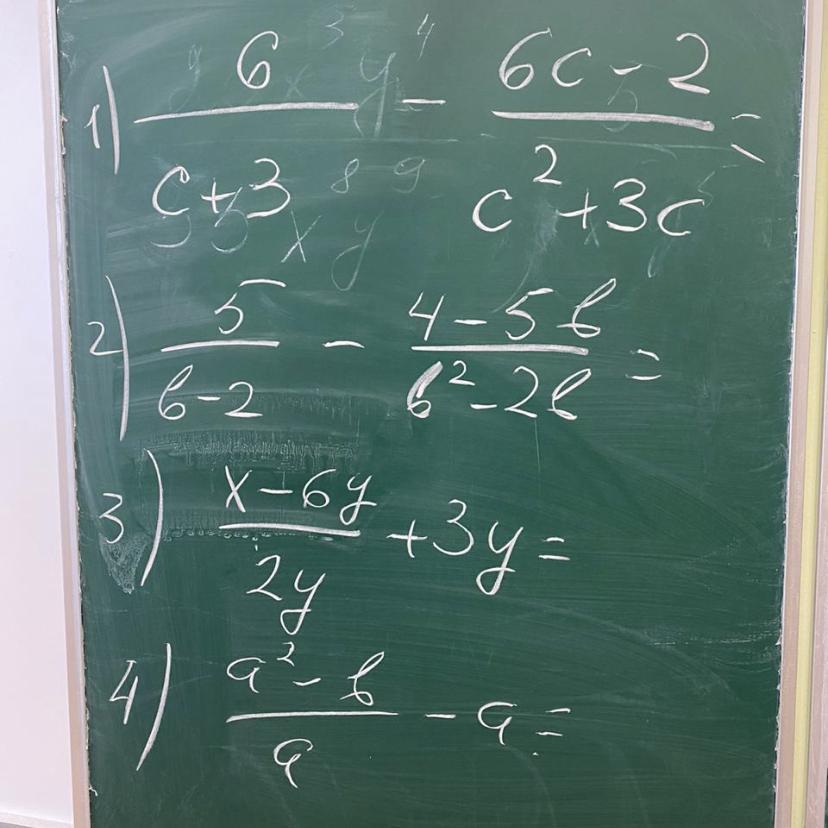 1) 6/(c+3) - (6c-2)/(c²+3c) =
2) 5/(b-2) - (4-5b)/(b²-2b) =
3) (x-6y)/(2y) + 3y =
4) (a²-b)/a - a =